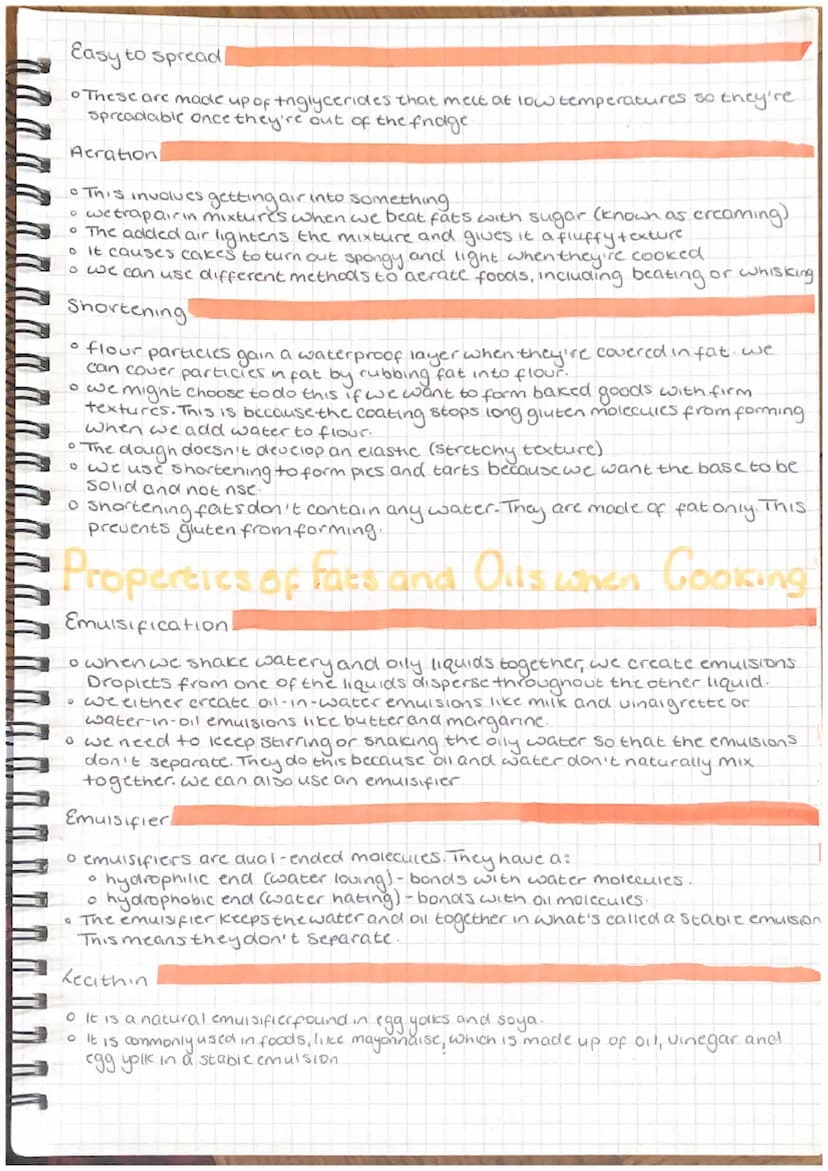 Easy to spread
○ These are made up of triglycerides that melt at low temperatures so they're
spreadable once they're out of the fridge
Aeration
○ This involves getting air into something
○ we trap air in mixtures when we beat fats with sugar (known as creaming)
○ The added air lightens the mixture and gives it a fluffy texture
○ It causes cakes to turn out spongy and light when they're cooked
○ we can use different methods to aerate foods, including beating or whisking
Shortening
○ flour particles gain a waterproof layer when they're covered in fat. we
can cover particles in fat by rubbing fat into flour.
○ we might choose to do this if we want to form baked goods with firm
textures. This is because the coating stops long gluten molecules from forming
when we add water to flour.
○ The dough doesn't develop an elastic (stretchy texture)
○ we use shortening to form pies and tarts because we want the base to be
solid and not rise.
○ shortening fats don't contain any water. They are made of fat only. This
prevents gluten from forming.
Properties of Fats and Oils when Cooking
Emulsification
○ when we shake watery and oily liquids together, we create emulsions
Droplets from one of the liquids disperse throughout the other liquid.
○ we either create oil-in-water emulsions like milk and vinaigrette or
water-in-oil emulsions like butter and margarine.
○ we need to keep stirring or shaking the oily water so that the emulsions
don't separate. They do this because oil and water don't naturally mix
together. we can also use an emulsifier
Emulsifier
○ emulsifiers are dual-ended molecules. They have a:
○ hydrophilic end (water loving) - bonds with water molecules.
○ hydrophobic end (water hating) - bonds with oil molecules.
○ The emulsifier keeps the water and oil together in what's called a stable emulsion
This means they don't separate.
Lecithin
○ It is a natural emulsifier found in egg yolks and soya.
○ It is commonly used in foods, like mayonnaise, which is made up of oil, vinegar and
egg yolk in a stable emulsion